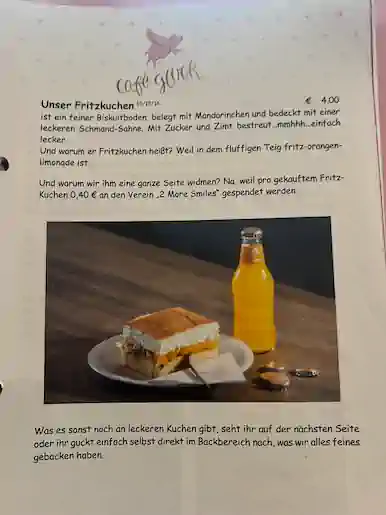 café glück
Unser Fritzkuchen € 4,00
ist ein feiner Biskuitboden, belegt mit Mandarinchen und bedeckt mit einer
leckeren Schmand-Sahne. Mit Zucker und Zimt bestreut...mmhhh...einfach
lecker.
Und warum er Fritzkuchen heißt? Weil in dem fluffigen Teig fritz-orangen-
limonade ist.
Und warum wir ihm eine ganze Seite widmen? Na, weil pro gekauftem Fritz-
Kuchen 0,40 € an den Verein „2 More Smiles" gespendet werden.
Was es sonst noch an leckeren Kuchen gibt, seht ihr auf der nächsten Seite
oder ihr guckt einfach selbst direkt im Backbereich nach, was wir alles feines
gebacken haben.